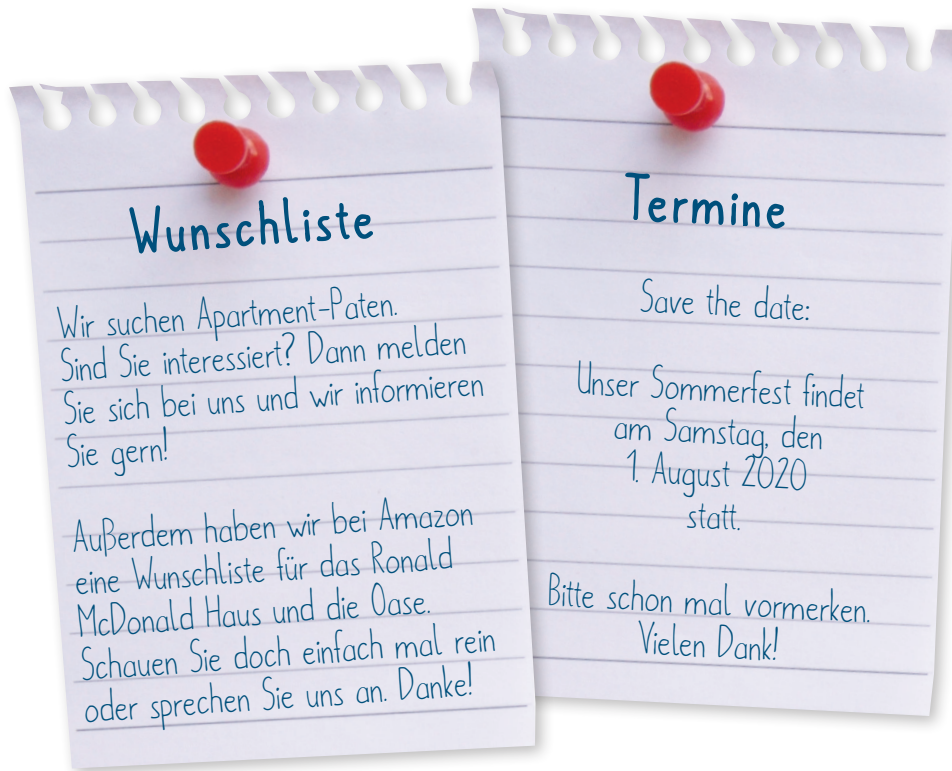 Wunschliste
Wir suchen Apartment-Paten.
Sind Sie interessiert? Dann melden
Sie sich bei uns und wir informieren
Sie gern!
Außerdem haben wir bei Amazon
eine Wunschliste für das Ronald
McDonald Haus und die Oase.
Schauen Sie doch einfach mal rein
oder sprechen Sie uns an. Danke!
Termine
Save the date:
Unser Sommerfest findet
am Samstag, den
1. August 2020
statt.
Bitte schon mal vormerken.
Vielen Dank!